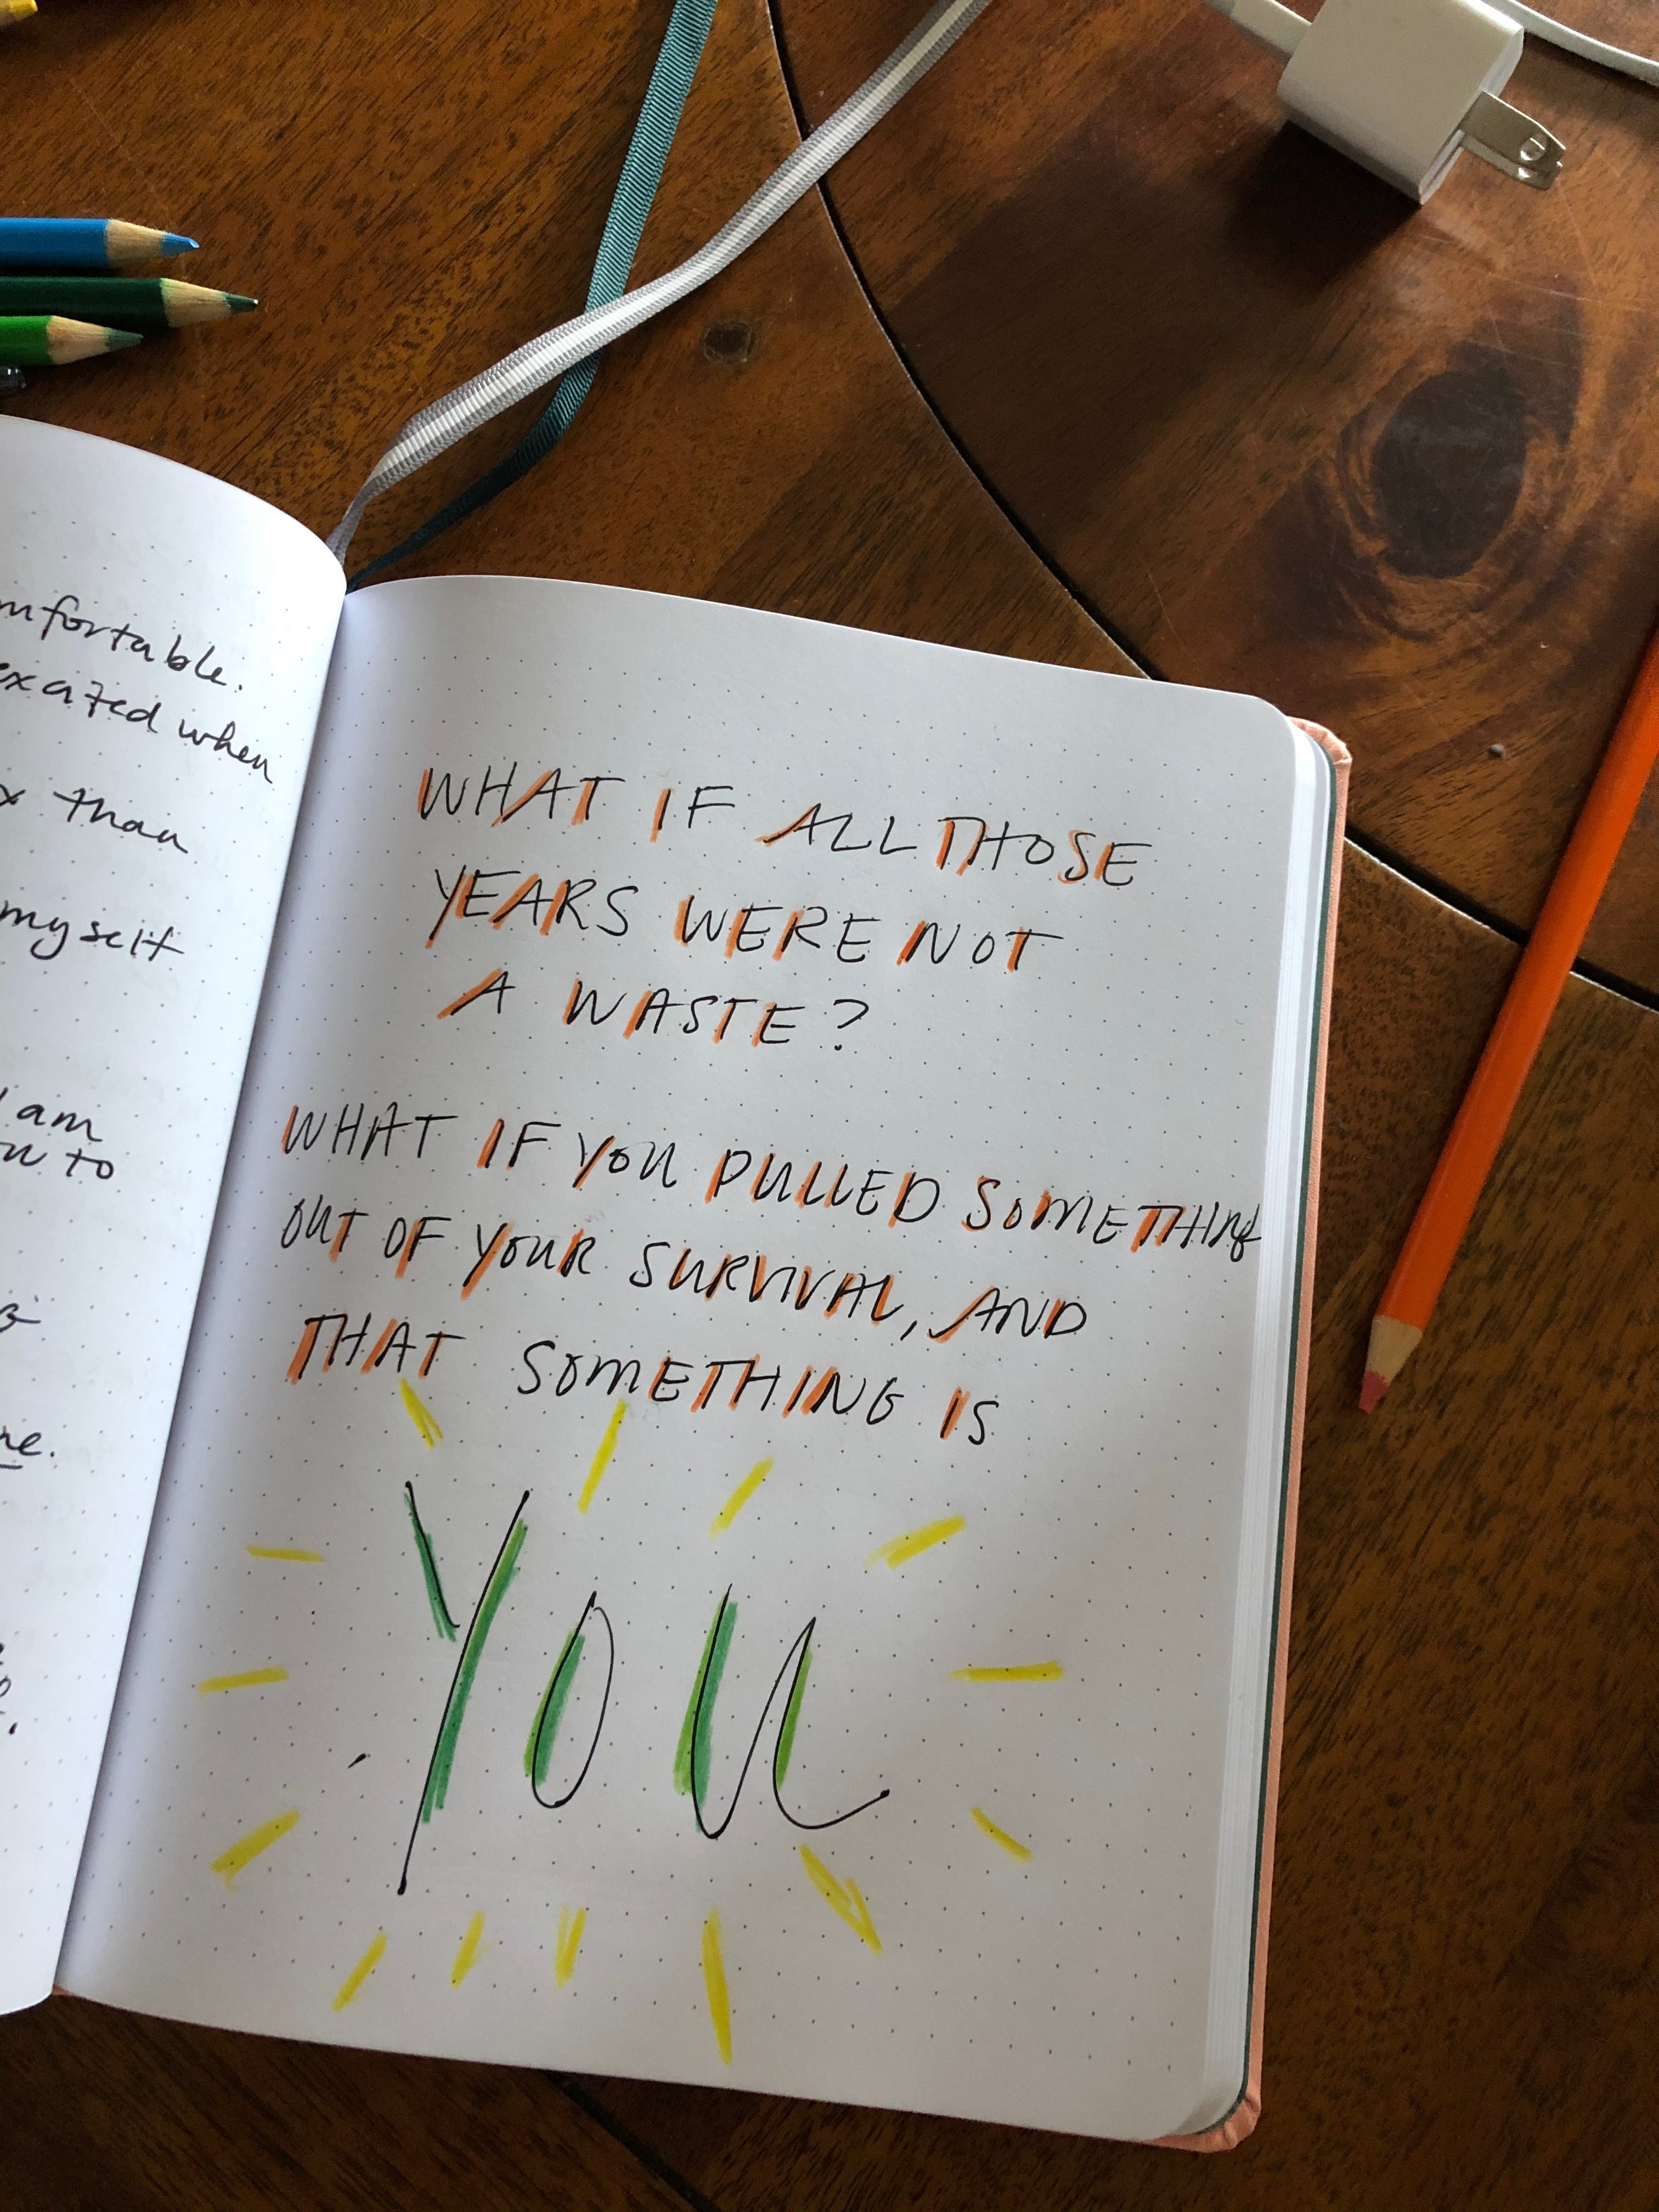 comfortable.
when
than
myself
am
to
WHAT IF ALL THOSE
YEARS WERE NOT
A WASTE?
WHAT IF YOU PULLED SOMETHING
OUT OF YOUR SURVIVAL, AND
THAT SOMETHING IS
YOU